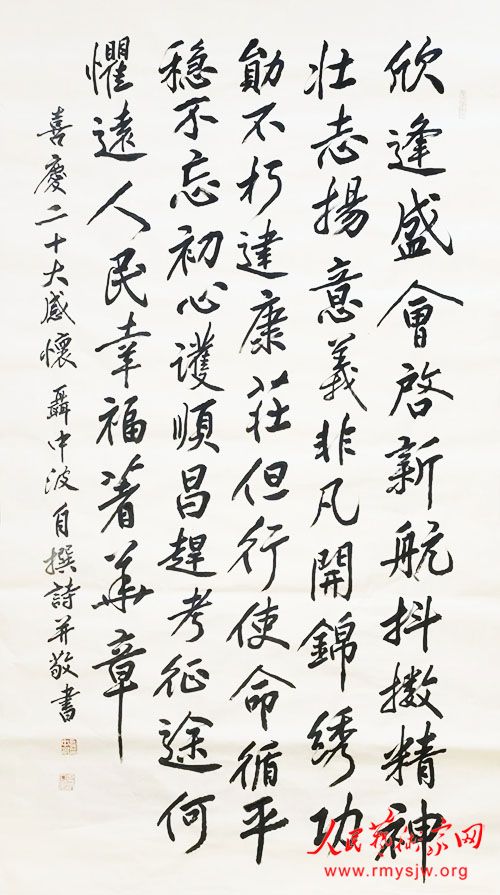 欣逢盛會啓新航抖擻精神
壯志揚意義非凡開錦綉功
勛不朽建康莊但行使命循平
穩不忘初心護順昌趕考征途何
懼遠人民幸福著華章
喜慶二十大感懷 聶中波自撰詩并敬書
人民艺术家网
www.rmysjw.org